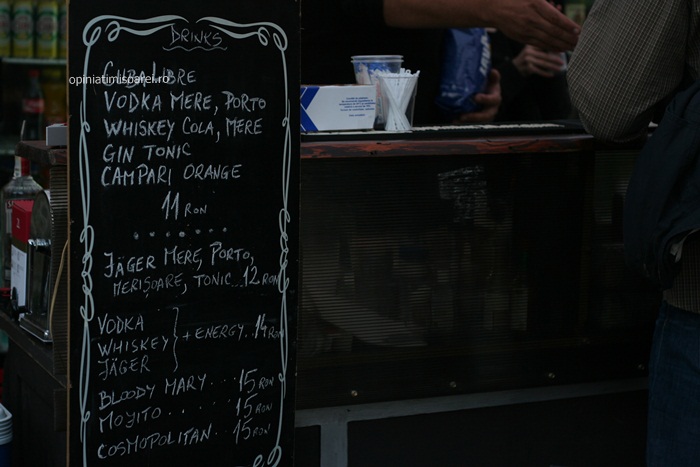 DRINKS
opiniatimisoarei.ro
CUBA LIBRE
VODKA MERE, PORTO
WHISKEY COLA, MERE
GIN TONIC
CAMPARI ORANGE
11 RON
JÄGER MERE, PORTO,
MERIȘOARE, TONIC...12 RON
VODKA
WHISKEY + ENERGY..14 RON
JÄGER
BLOODY MARY...15 RON
MOJITO.....15 RON
COSMOPOLITAN...15 RON